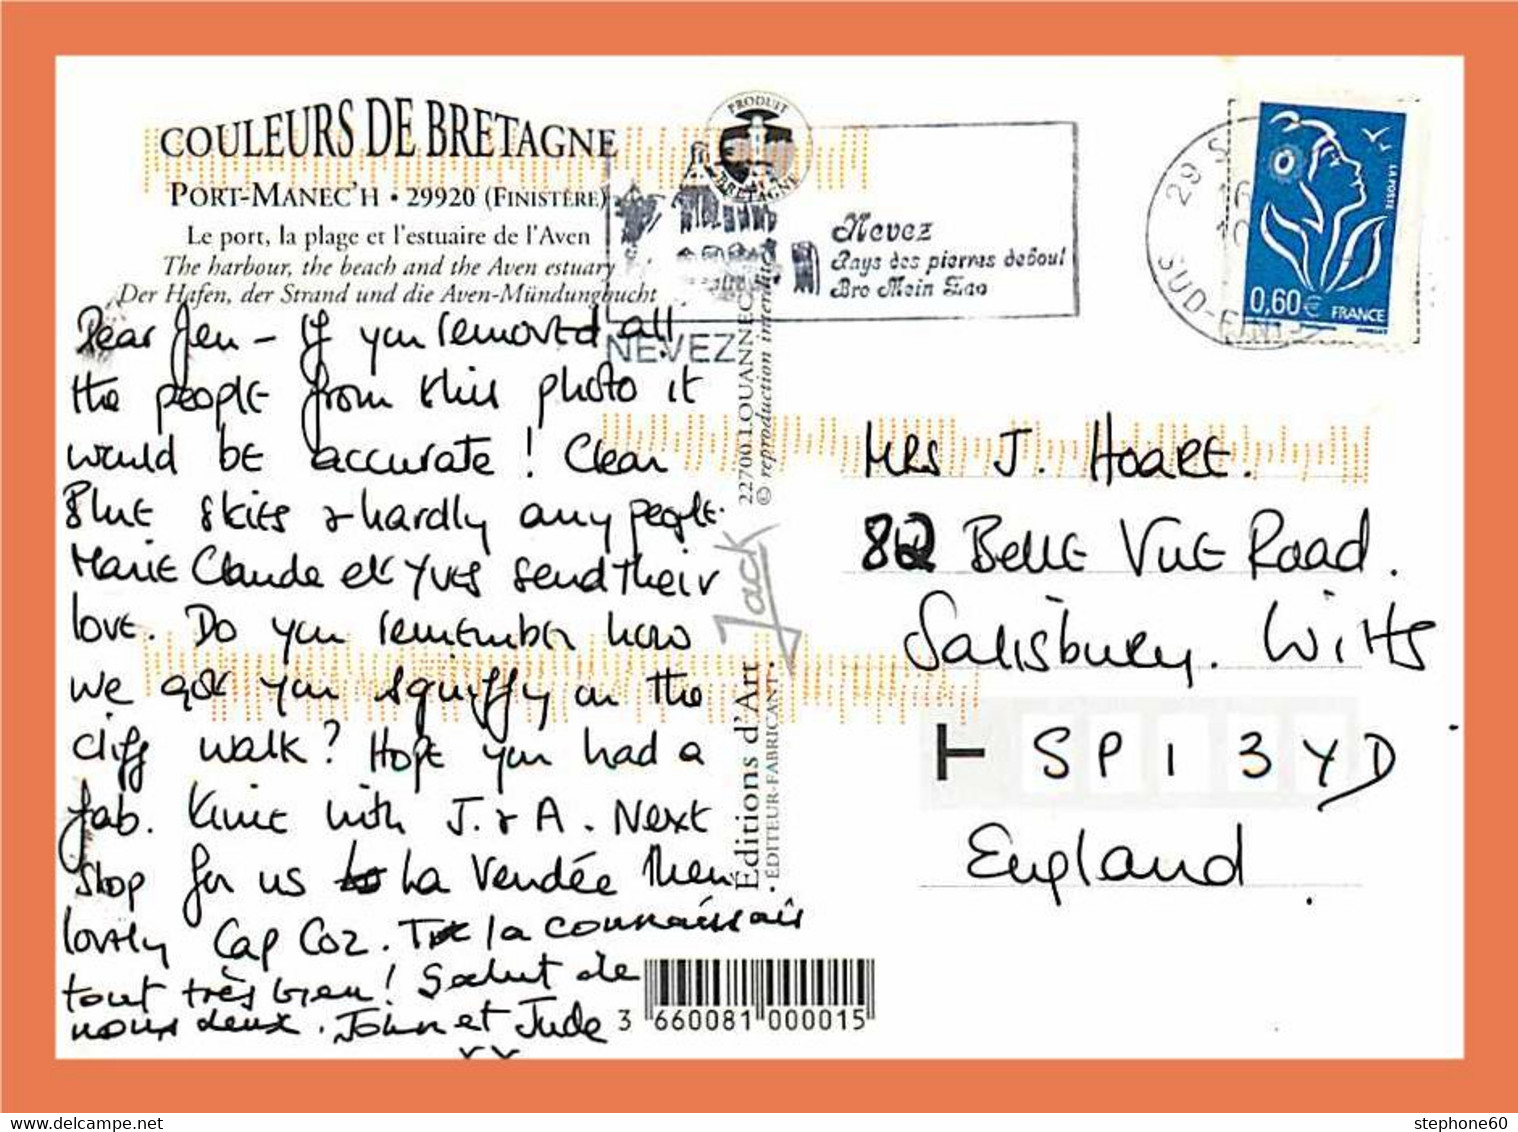 COULEURS DE BRETAGNE
PORT-MANEC'H • 29920 (FINISTÈRE)
Le port, la plage et l'estuaire de l'Aven
The harbour, the beach and the Aven estuary
Der Hafen, der Strand und die Aven-Mündungbucht
PRODUIT
BRETAGNE
Nevez
Pays des pierres debout
Bro Mein Zao
NEVEZ
29
16
SUD-FINIS
LA POSTE
0,60€ FRANCE
Dear Jen - If you removed all
the people from this photo it
would be accurate! Clear
Blue skies & hardly any people.
Marie Claude et Yves send their
love. Do you remember how
we got you squiffy on the
cliff walk? Hope you had a
fab. time with J. & A. Next
stop for us La Vendée then
lovely Cap Coz. Tu la connaissais
tout très bien! Salut de
nous deux. John et Jude
x x
22700 LOUANNEC
© reproduction interdite
Jack
Éditions d'Art
• ÉDITEUR-FABRICANT •
3 660081 000015
MRS J. HOARE.
82 Belle Vue Road.
Salisbury. Wilts
T SP1 3YD
England.
stephone60